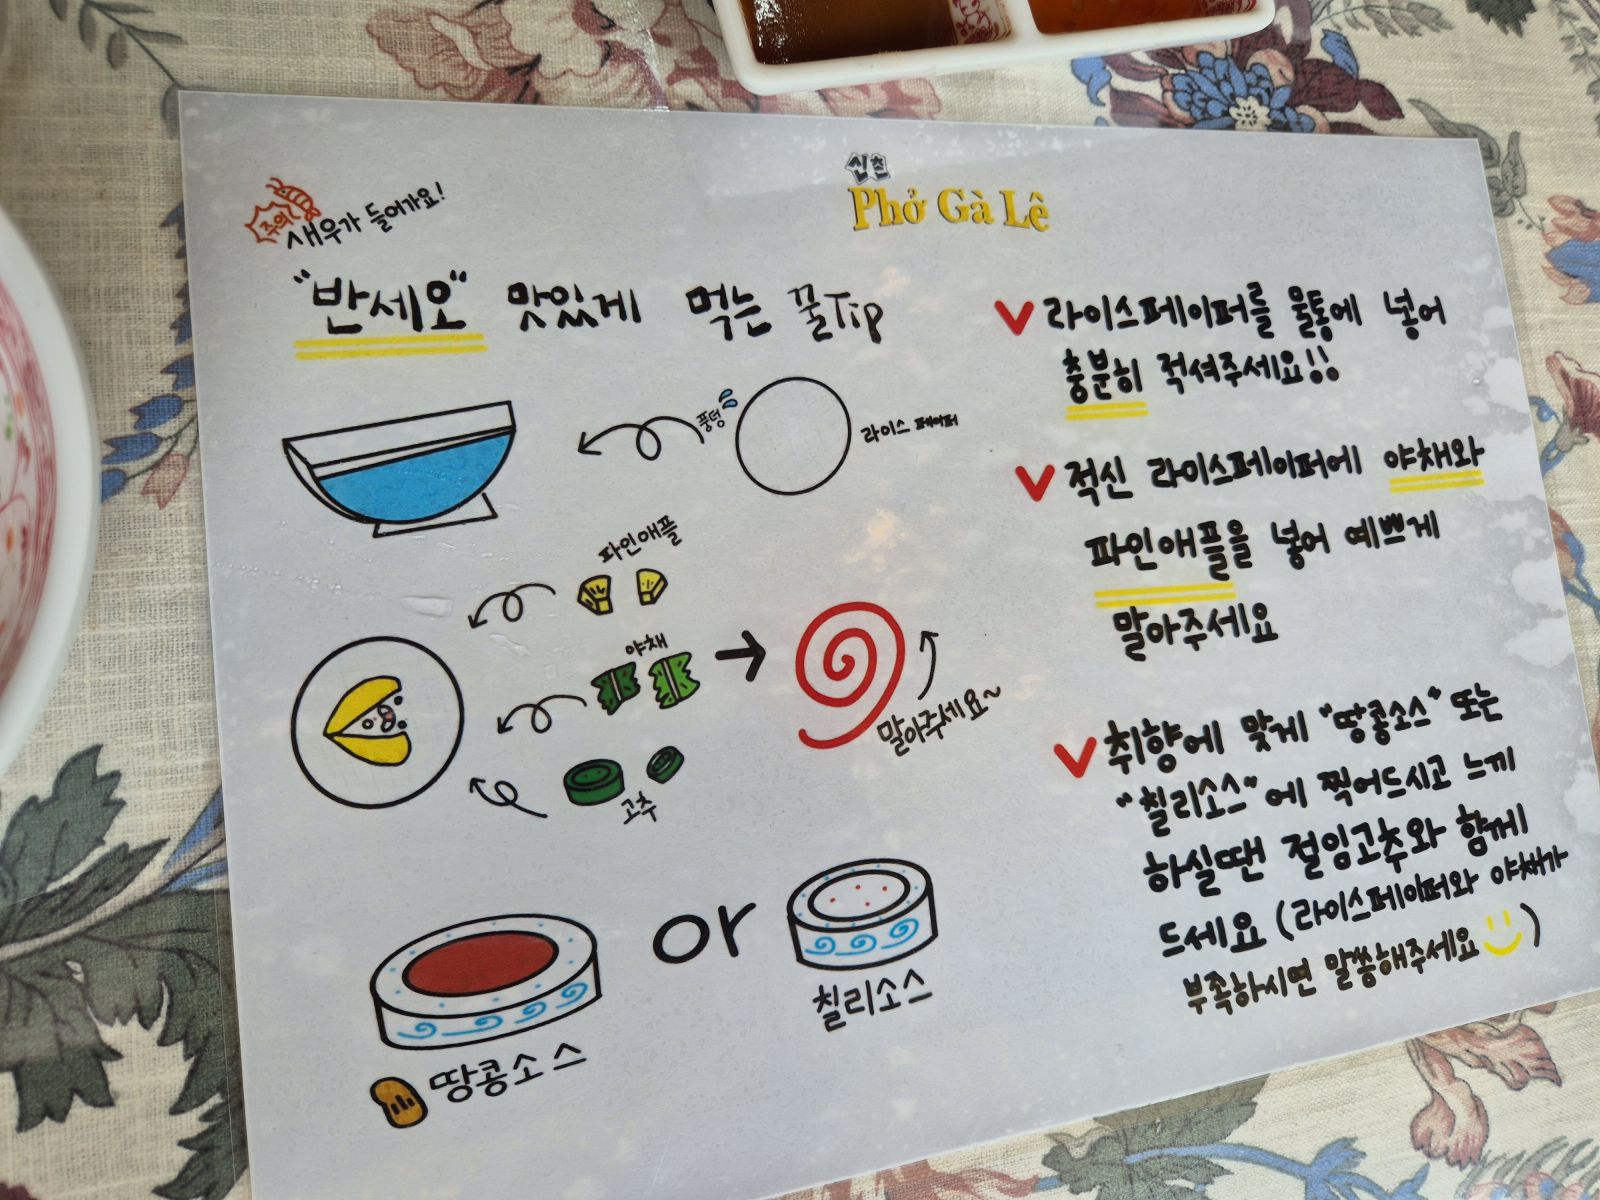 신촌
Phở Gà Lê
주의 새우가 들어가요!
"반세오" 맛있게 먹는 꿀Tip
풍덩
라이스 페이퍼
파인애플
야채
고추
말아주세요~
땅콩소스
or
칠리소스
V 라이스페이퍼를 물통에 넣어
충분히 적셔주세요!!
V 적신 라이스페이퍼에 야채와
파인애플을 넣어 예쁘게
말아주세요
V 취향에 맞게 "땅콩소스" 또는
"칠리소스"에 찍어드시고 느끼
하실땐 절임고추와 함께
드세요 (라이스페이퍼와 야채가
부족하시면 말씀해주세요)